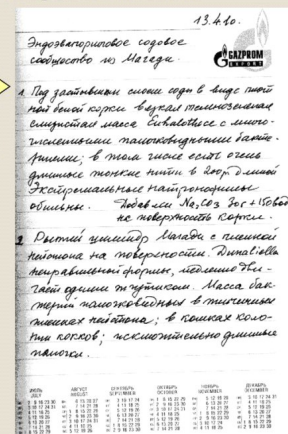 13.4.10.
GAZPROM
EXPORT
Эндоэвапоритовое содовое
сообщество из Магади
1. Под застывшим слоем соды в виде плот
ной белой корки вязкая темнозеленая
слизистая масса Euhalothece с много-
численными палочковидными бакте-
риями; в том числе есть очень
длинные тонкие нити в 200μ длиной
Экстремальные натронофилы
обильны. Добавлен Na₂CO₃ 30г + 150вод
на поверхность корки.
2. Рыжий цилиндр Магади с пленкой
нейстона на поверхности. Dunaliella
неправильной формы,
одним жгутиком. Масса бак-
терий палочковидных в типичных
нейстона; в комках коло-
нии кокков; исключительно длинные
палочки.
ИЮЛЬ АВГУСТ СЕНТЯБРЬ ОКТЯБРЬ НОЯБРЬ ДЕКАБРЬ
JULY AUGUST SEPTEMBER OCTOBER NOVEMBER DECEMBER